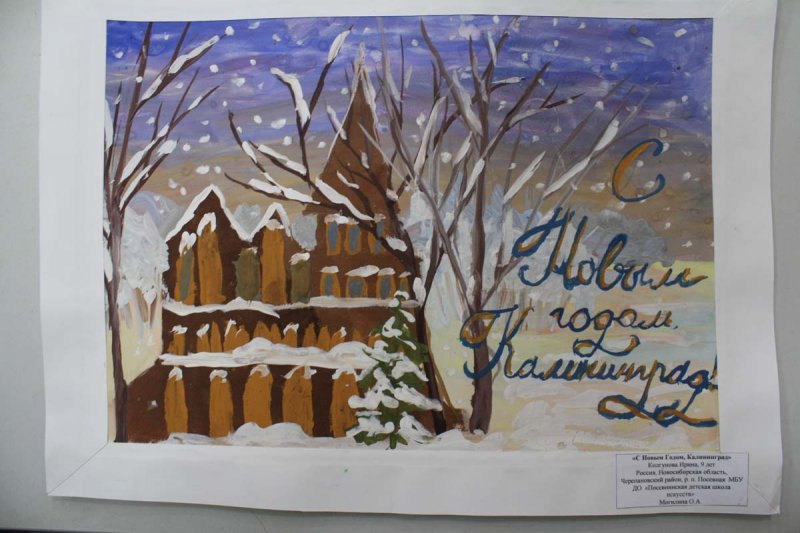 С
Новым
годом,
Калининград!
«С Новым Годом, Калининград»
Колгунова Ирина, 9 лет
Россия, Новосибирская область,
Черепановский район, р. п. Посевная МБУ
ДО «Посевнинская детская школа
искусств»
Могилина О.А.